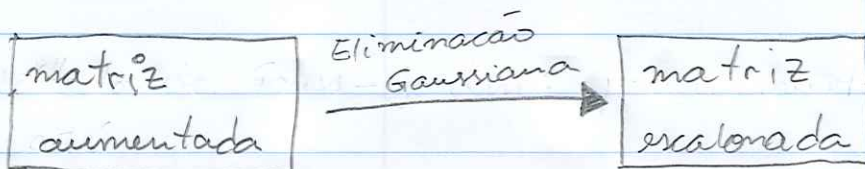 matriz
aumentada
Eliminação
Gaussiana
matriz
escalonada